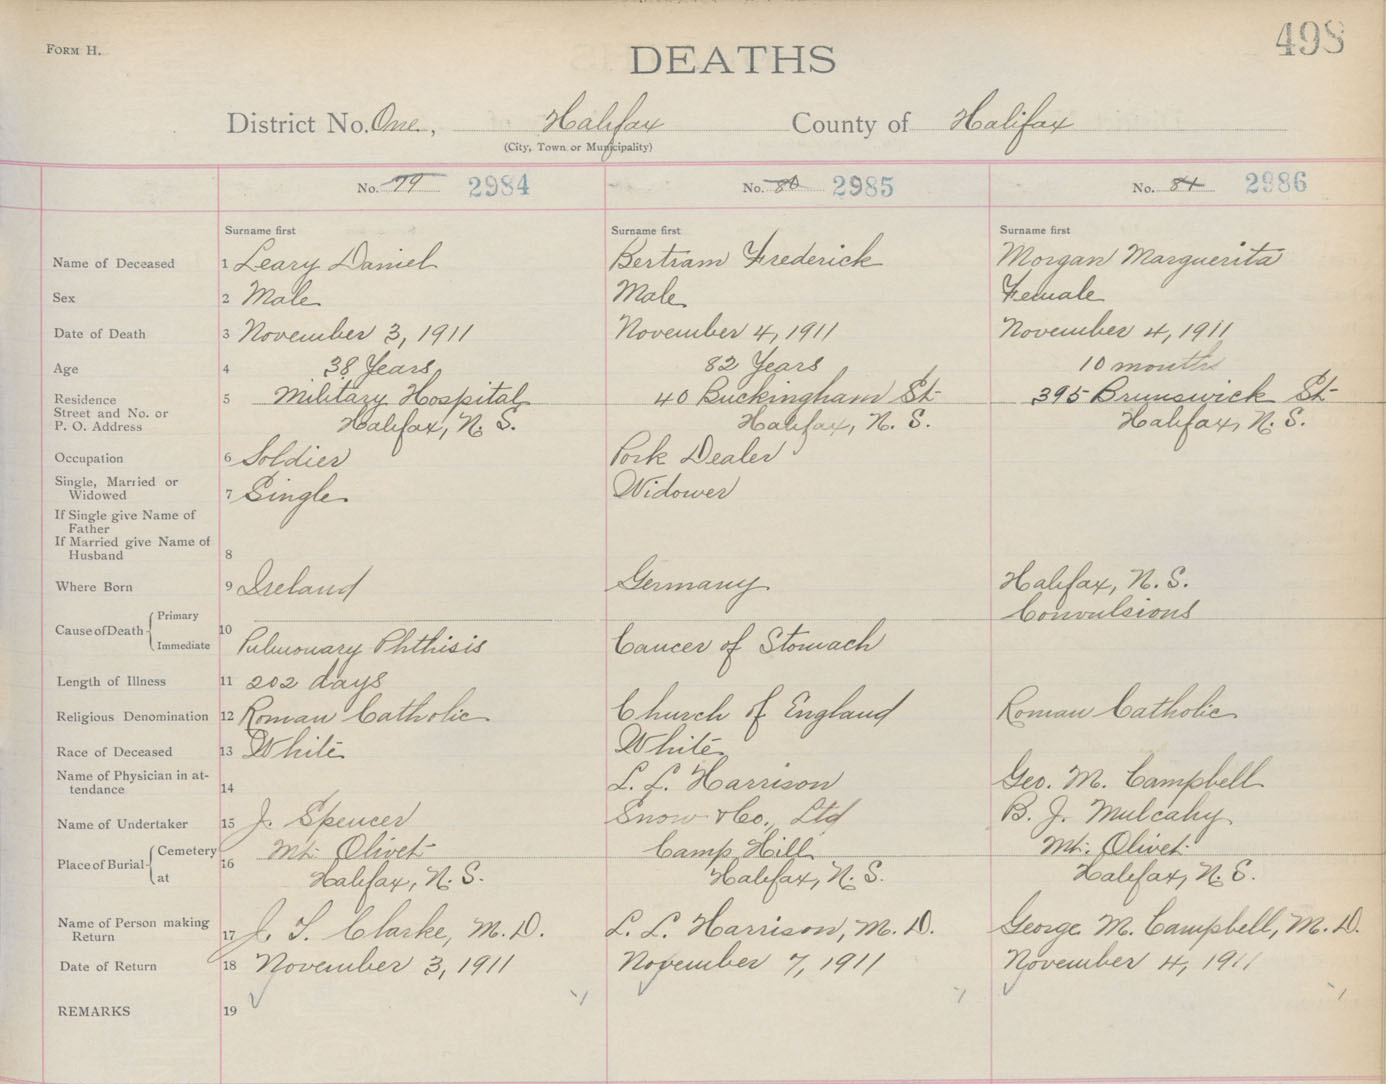 498
FORM H.
DEATHS
District No. One, Halifax County of Halifax
(City, Town or Municipality)
No. 79 2984 No. 80 2985 No. 81 2986
Surname first Surname first Surname first
Name of Deceased 1 Leary Daniel Bertram Frederick Morgan Marguerita
Sex 2 Male Male Female
Date of Death 3 November 3, 1911 November 4, 1911 November 4, 1911
Age 4 38 Years 82 Years 10 months
Residence 5 Military Hospital 40 Buckingham St 395 Brunswick St
Street and No. or
P. O. Address Halifax, N. S. Halifax, N. S. Halifax, N. S.
Occupation 6 Soldier Pork Dealer
Single, Married or
Widowed 7 Single Widower
If Single give Name of
Father
If Married give Name of
Husband 8
Where Born 9 Ireland Germany Halifax, N. S.
Primary Convulsions
Cause of Death 10
Immediate Pulmonary Phthisis Cancer of Stomach
Length of Illness 11 202 days
Religious Denomination 12 Roman Catholic Church of England Roman Catholic
Race of Deceased 13 White White
Name of Physician in at-
tendance 14 L. L. Harrison Geo. M. Campbell
Name of Undertaker 15 J. Spencer Snow & Co., Ltd B. J. Mulcahy
Cemetery Mt. Olivet Camp Hill Mt. Olivet
Place of Burial 16
at Halifax, N. S. Halifax, N. S. Halifax, N. S.
Name of Person making
Return 17 J. T. Clarke, M. D. L. L. Harrison, M. D. George M. Campbell, M. D.
Date of Return 18 November 3, 1911 November 7, 1911 November 4, 1911
REMARKS 19